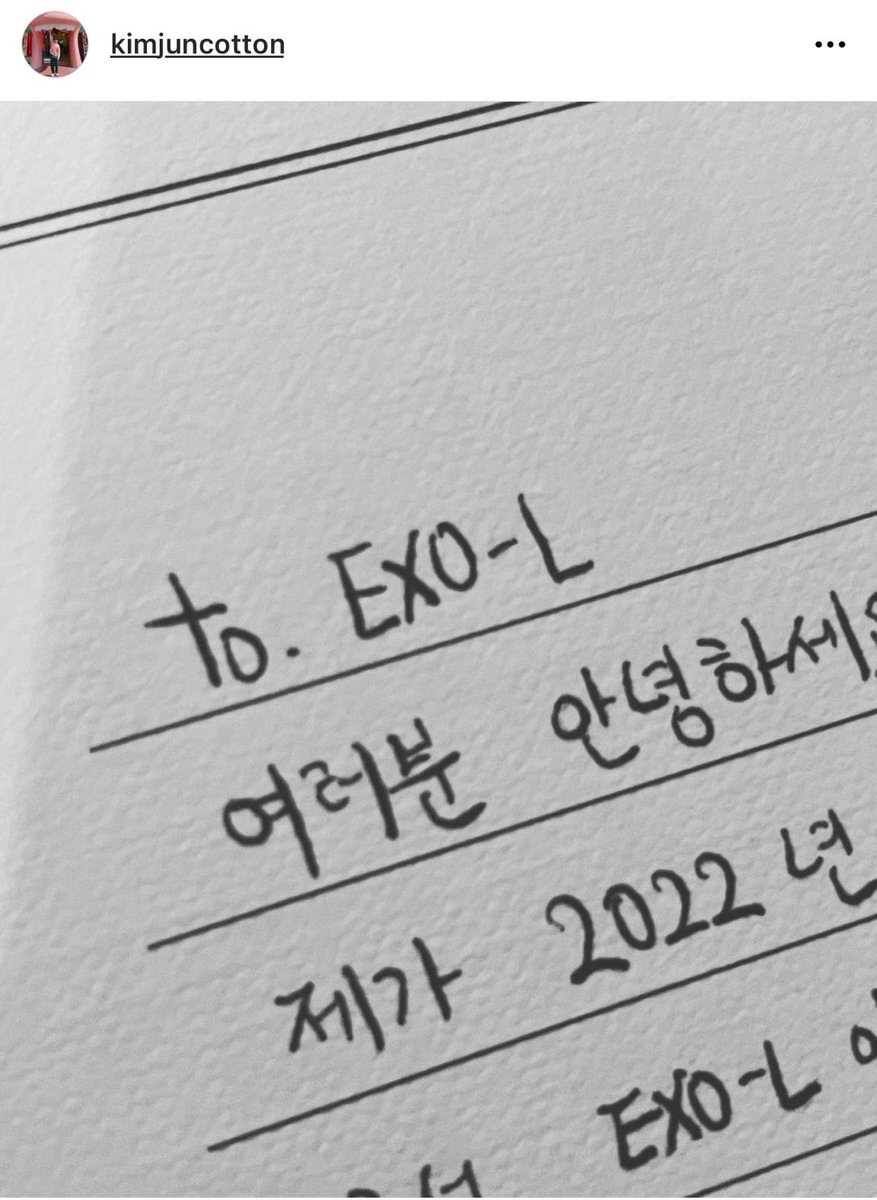 kimjuncotton
to. EXO-L
여러분 안녕하세
제가 2022년
EXO-L